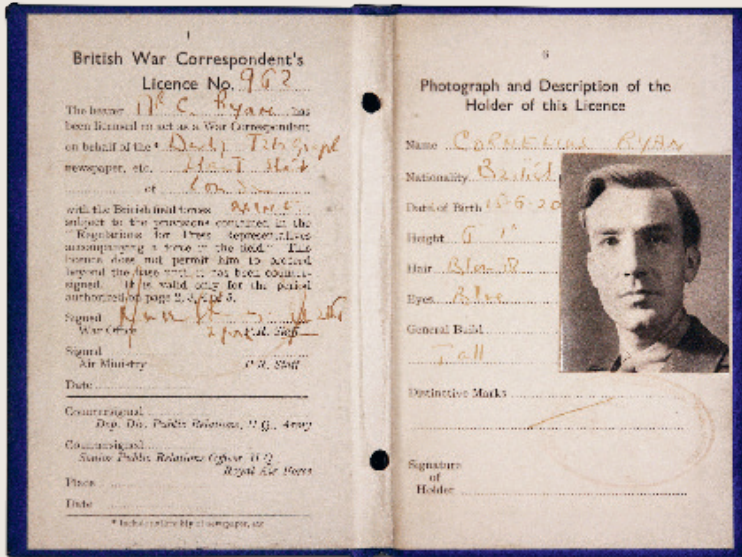 1
British War Correspondent's
Licence No. 962
The bearer Mr C. Ryan has
been licensed to act as a War Correspondent
on behalf of the * Daily Telegraph
newspaper, etc.
of London
with the British field forces
subject to the provisions contained in the
"Regulations for Press Representatives
accompanying a force in the field." This
licence does not permit him to proceed
beyond the base until it has been counter-
signed. It is valid only for the period
authorized on page 2, 3, 4 or 5.
Signed
War Office P.R. Staff
Signed
Air Ministry P.R. Staff
Date
Countersigned
Dep. Div. Public Relations, H.Q., Army
Countersigned
Senior Public Relations Officer, H.Q.
Royal Air Force
Place
Date
6
Photograph and Description of the
Holder of this Licence
Name CORNELIUS RYAN
Nationality British
Date of Birth
Height 6' 1"
Hair Blond
Eyes Blue
General Build
Tall
Distinctive Marks
Signature
of
Holder